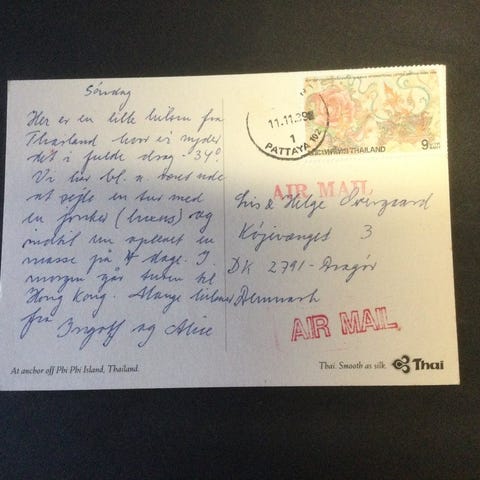 Søndag
Her er en lille hilsen fra
Thailand hvor vi nyder
det i fulde drag - 34°
Vi har bl. a. været ude
at sejle en tur med
en (luxus) og
indtil nu oplevet en
masse på 4 dage. I
morgen går turen til
Hong Kong. Mange hilsner
fra Ingolf og Alice
11.11.
1
PATTAYA
THAILAND
9
BAHT
AIR MAIL
Lis & Helge Overgaard
Køjevænget 3
DK 2791 - Dragør
Denmark
AIR MAIL
At anchor off Phi Phi Island, Thailand.
Thai. Smooth as silk.
Thai